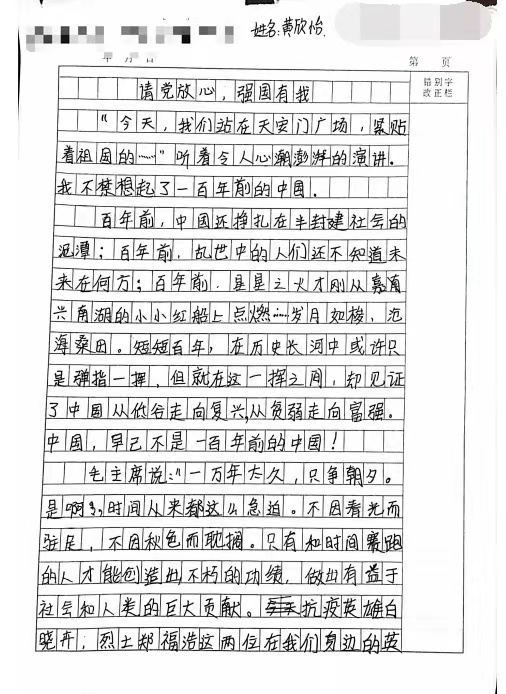 姓名:黄欣怡
年 月 日
第 页
错别字
改正栏
请党放心,强国有我
“今天,我们站在天安门广场,紧贴
着祖国的……”听着令人心潮澎湃的演讲.
我不禁想起了一百年前的中国.
百年前,中国还挣扎在半封建社会的
泥潭;百年前,乱世中的人们还不知道未
来在何方;百年前,星星之火才刚从嘉
兴南湖的小小红船上点燃……岁月如梭,沧
海桑田。短短百年,在历史长河中或许只
是弹指一挥,但就在这一挥之间,却见证
了中国从低谷走向复兴,从贫弱走向富强。
中国,早已不是一百年前的中国!
毛主席说:“一万年太久,只争朝夕。
是啊,时间从来都这么急迫。不因春光而
驻足,不因秋色而耽搁。只有和时间赛跑
的人才能创造出不朽的功绩,做出有益于
社会和人类的巨大贡献。抗疫英雄白
晓卉;烈士郑福浩这两位在我们身边的英